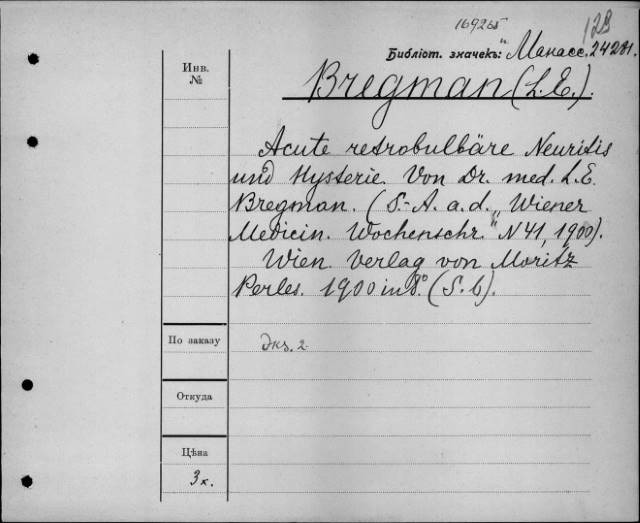 169265
128
Библіот. значекъ: "Манасс. 24281.
Инв.
№
Bregman (L.E.).
Acute retrobulbäre Neuritis
und Hysterie. Von Dr. med. L.E.
Bregman. (S.-A. a. d. „Wiener
Medicin. Wochenschr." N 41, 1900).
Wien. Verlag von Moritz
Perles. 1900 in 8° (S. 6).
По заказу
Экз. 2
Откуда
Цѣна
3 к.